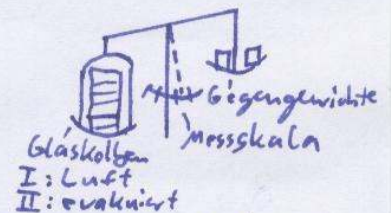 Gegengewichte
Messskala
Glaskolben
I: Luft
II: evakuiert